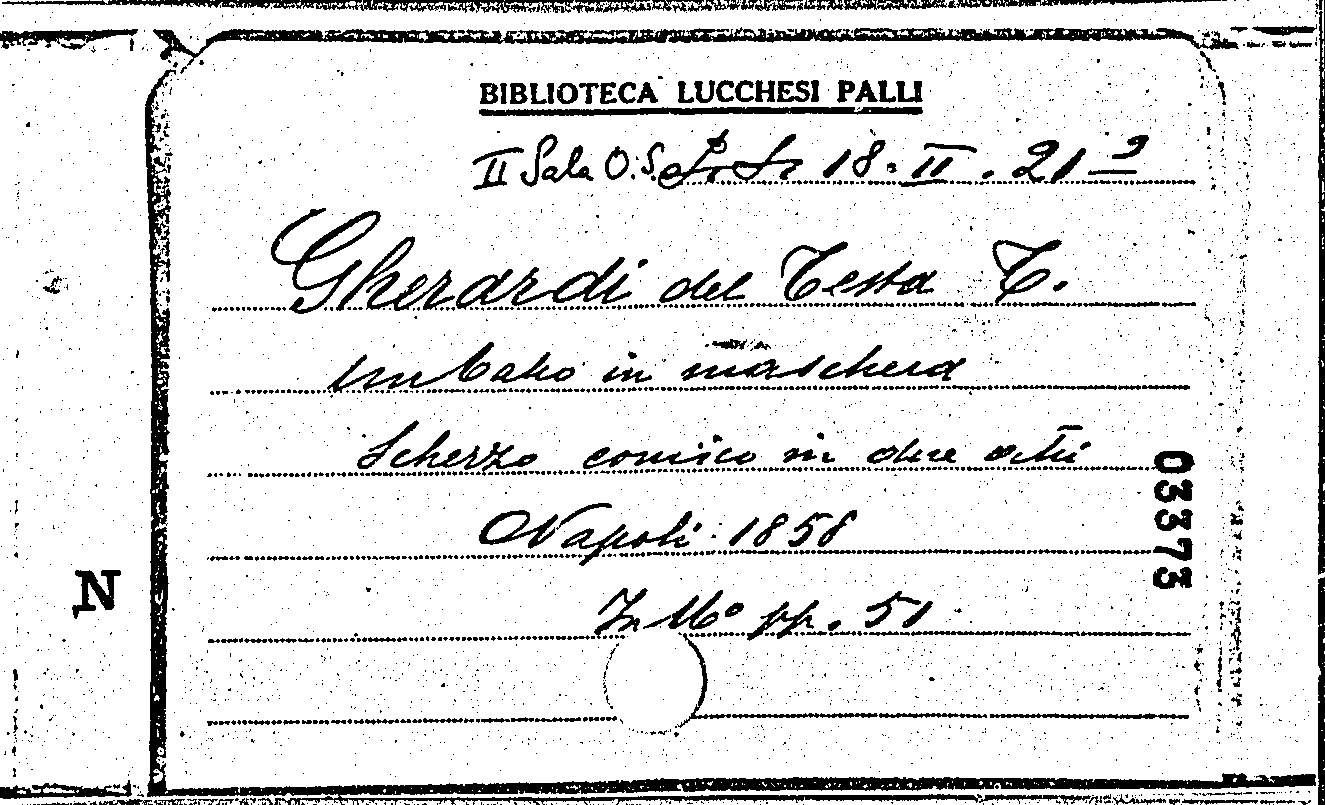 BIBLIOTECA LUCCHESI PALLI
II Sala O.S. 18. II. 21 9
Gherardi del Testa T.
Un ballo in maschera
Scherzo comico in due atti
Napoli 1858
In 16° pp. 51
03373
N